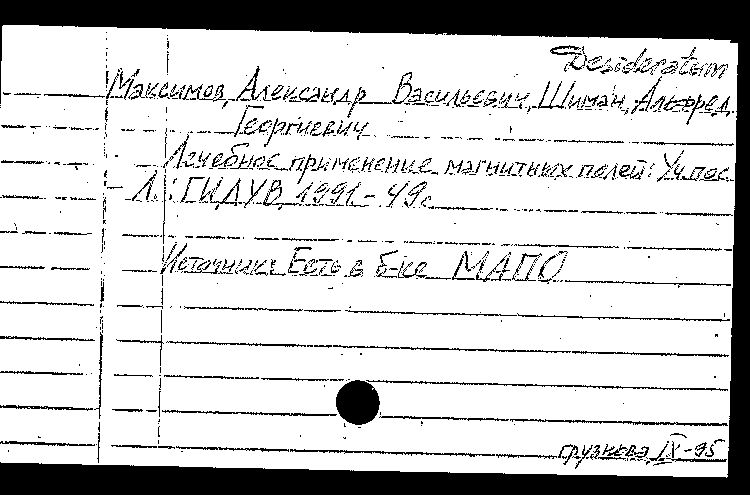 Desideratum
Максимов, Александр Васильевич, Шиман, Альфред
Георгиевич
Лечебное применение магнитных полей: Уч.пос
- Л.: ГИДУВ, 1991.- 49с
Источник: Есть в б-ке МАПО
IX-95